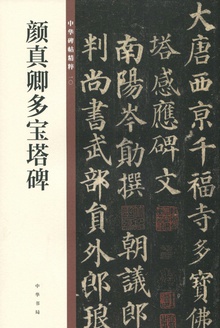 颜真卿多宝塔碑
中华碑帖精粹
中华书局
大唐西京千福寺多寶佛
塔感應碑文
南陽岑勛撰 朝議郎
判尚書武部員外郎琅